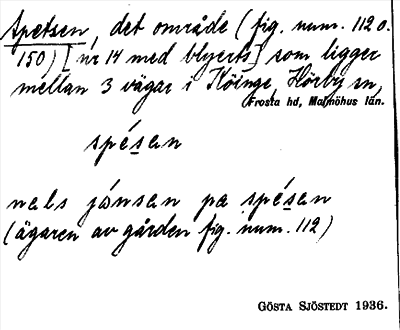 Spetsen, det område (fig. num. 112 o.
150) [nr 14 med blyerts] som ligger
mellan 3 vägar i Köinge, Hörby sn,
Frosta hd, Malmöhus län.
spésan
nals jánsan pa spésan
(ägaren av gården fig. num. 112)
GÖSTA SJÖSTEDT 1936.